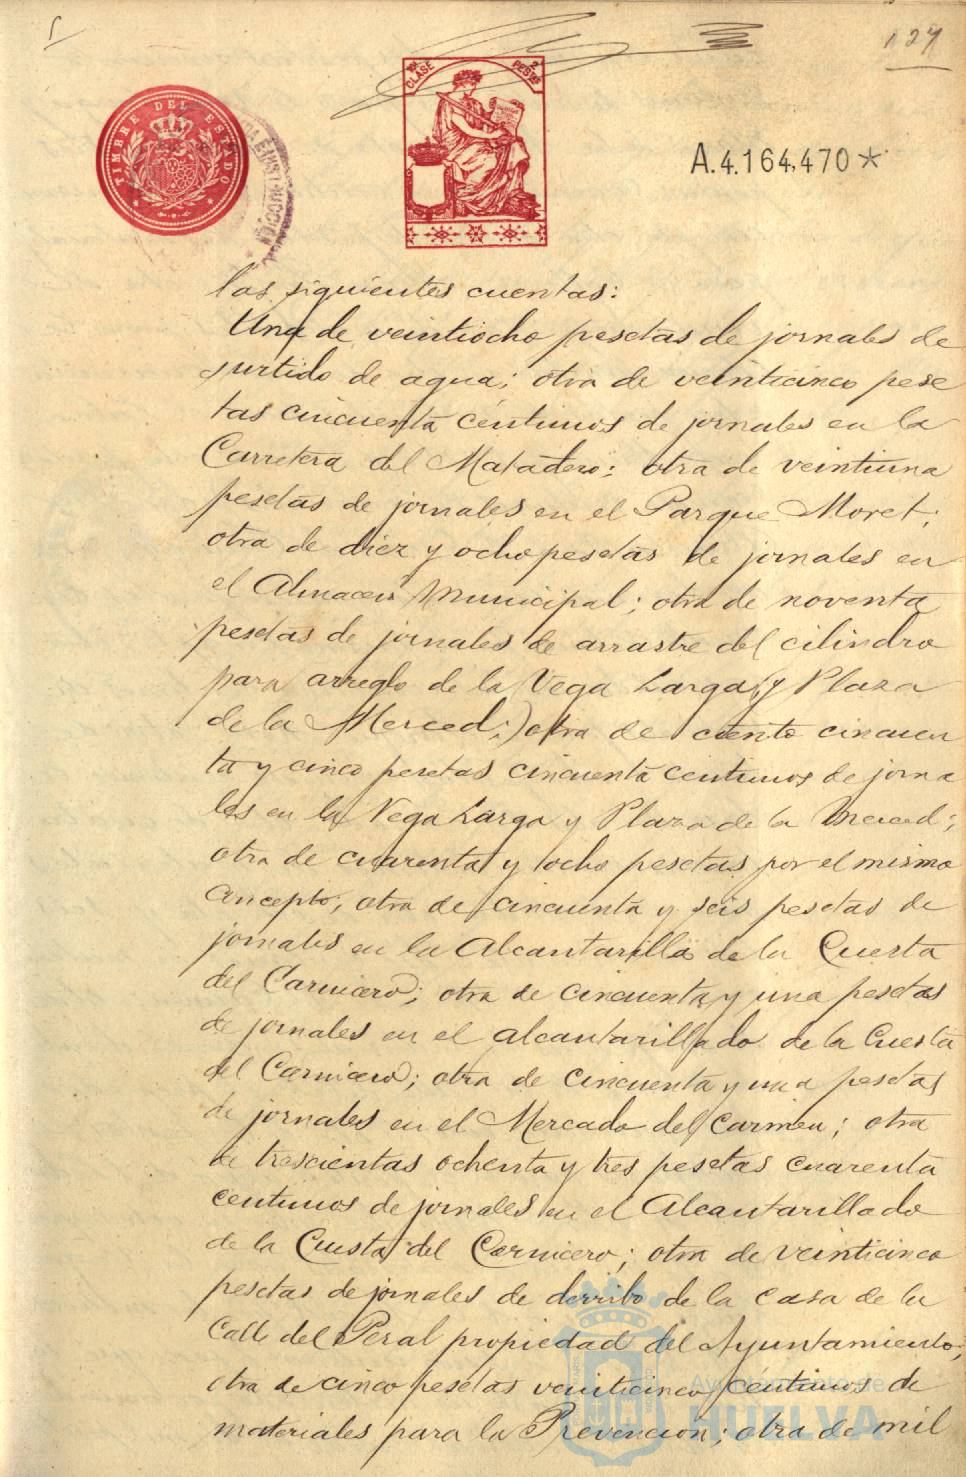 127
10ª CLASE 2 PESETAS
TIMBRE DEL ESTADO
A.4.164,470*
las siguientes cuentas:
Una de veintiocho pesetas de jornales de
surtido de agua; otra de veinticinco pese
tas cincuenta céntimos de jornales en la
Carretera del Matadero; otra de veintiuna
pesetas de jornales en el Parque Moret;
otra de diez y ocho pesetas de jornales en
el Almacen Municipal; otra de noventa
pesetas de jornales de arrastre del cilindro
para arreglo de la Vega Larga (y Plaza
de la Merced;) otra de ciento cincuen
ta y cinco pesetas cincuenta centimos de jorna
les en la Vega Larga y Plaza de la Merced;
otra de cuarenta y ocho pesetas por el mismo
concepto; otra de cincuenta y seis pesetas de
jornales en la Alcantarilla de la Cuesta
del Carnicero; otra de cincuenta y una pesetas
de jornales en el alcantarillado de la Cuesta
del Carnicero; otra de cincuenta y una pesetas
de jornales en el Mercado del Carmen; otra
de trescientas ochenta y tres pesetas cuarenta
centimos de jornales en el Alcantarillado
de la Cuesta del Carnicero; otra de veinticinco
pesetas de jornales de derribo de la casa de la
Calle del Peral propiedad del Ayuntamiento;
otra de cinco pesetas veinticinco céntimos de
materiales para la Prevencion; otra de mil
Ayuntamiento de
HUELVA